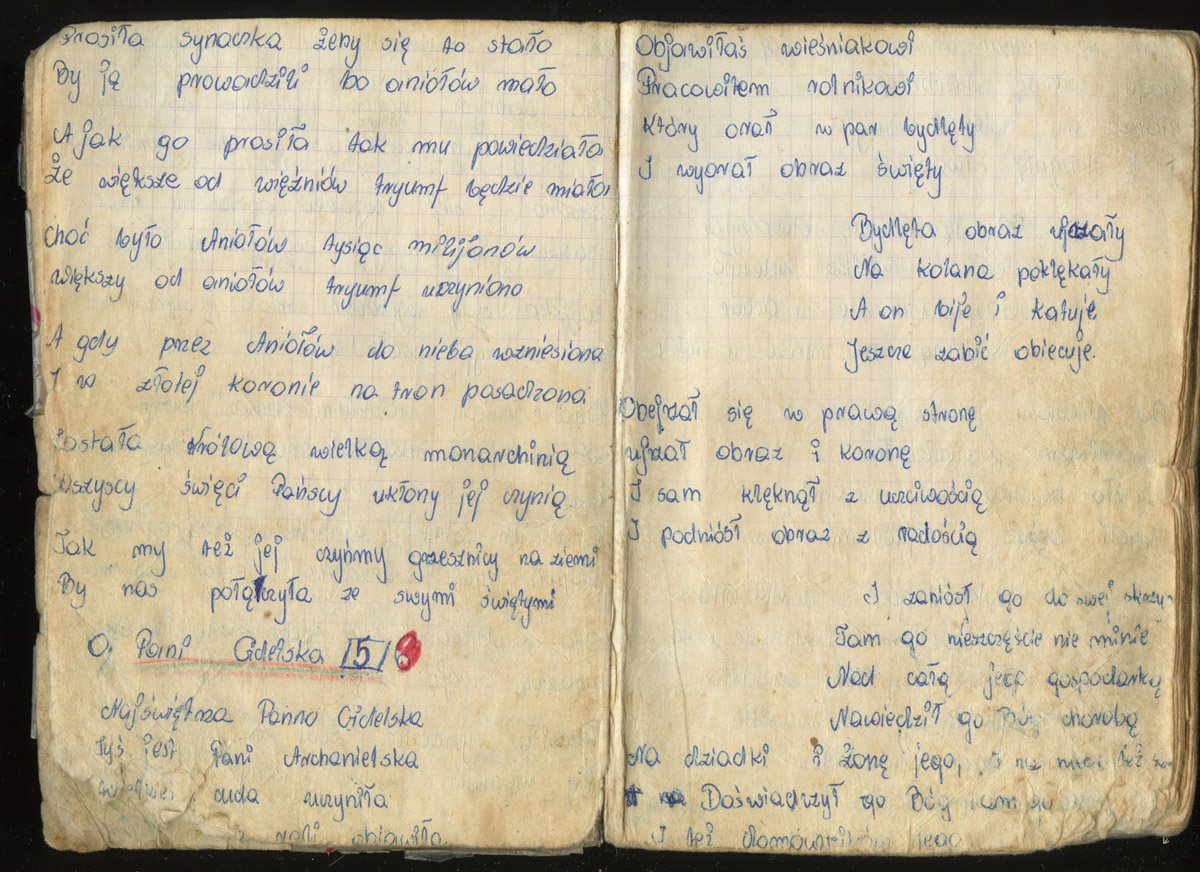 Prosiła synaczka żeby się to stało
By ją prowadzili bo aniołów mało
A jak go prosiła tak mu powiedziała
Że większe od więźniów tryumf będzie miała
Choć było Aniołów tysiąc milijonów
większy od aniołów tryumf uczyniono
A gdy przez Aniołów do nieba wzniesiona
I w złotej koronie na tron posadzona
Została królową wielką monarchinią
Wszyscy święci Pańscy ukłony jej czynią
Tak my też jej czyńmy grzesznicy na ziemi
By nas połączyła ze swymi świętymi
O. Pani Gidelska 5
Najświętsza Panno Gidelska
Tyś jest Pani Archanielska
cuda uczyniła
roli objawiła
Objawiłaś wieśniakowi
Pracowitem rolnikowi
Który orał w par bydlęty
I wyorał obraz święty
Bydlęta obraz ujrzały
Na kolana poklękały
A on bije i katuje
Jeszcze zabić obiecuje.
Obejrzał się w prawą stronę
ujrzał obraz i koronę
I sam klęknął z uczciwością
I podniósł obraz z radością
I zaniósł go do swei skrzy
Tam go nieszczęście nie minie
Nad całą jego gospodarką
Nawiedził go Bóg chorobą
Na dziadki i żonę jego,
Doświadczył go Bóg
I też jego